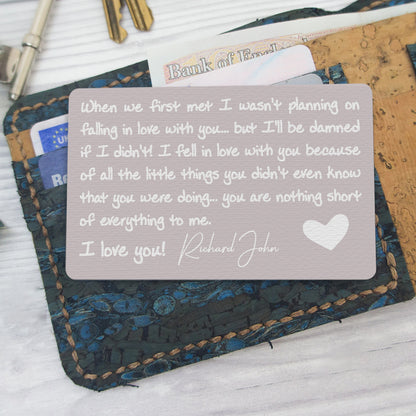 Bank of Engl
When we first met I wasn't planning on
falling in love with you... but I'll be damned
if I didn't! I fell in love with you because
of all the little things you didn't even know
that you were doing... you are nothing short
of everything to me.
I love you! Richard John